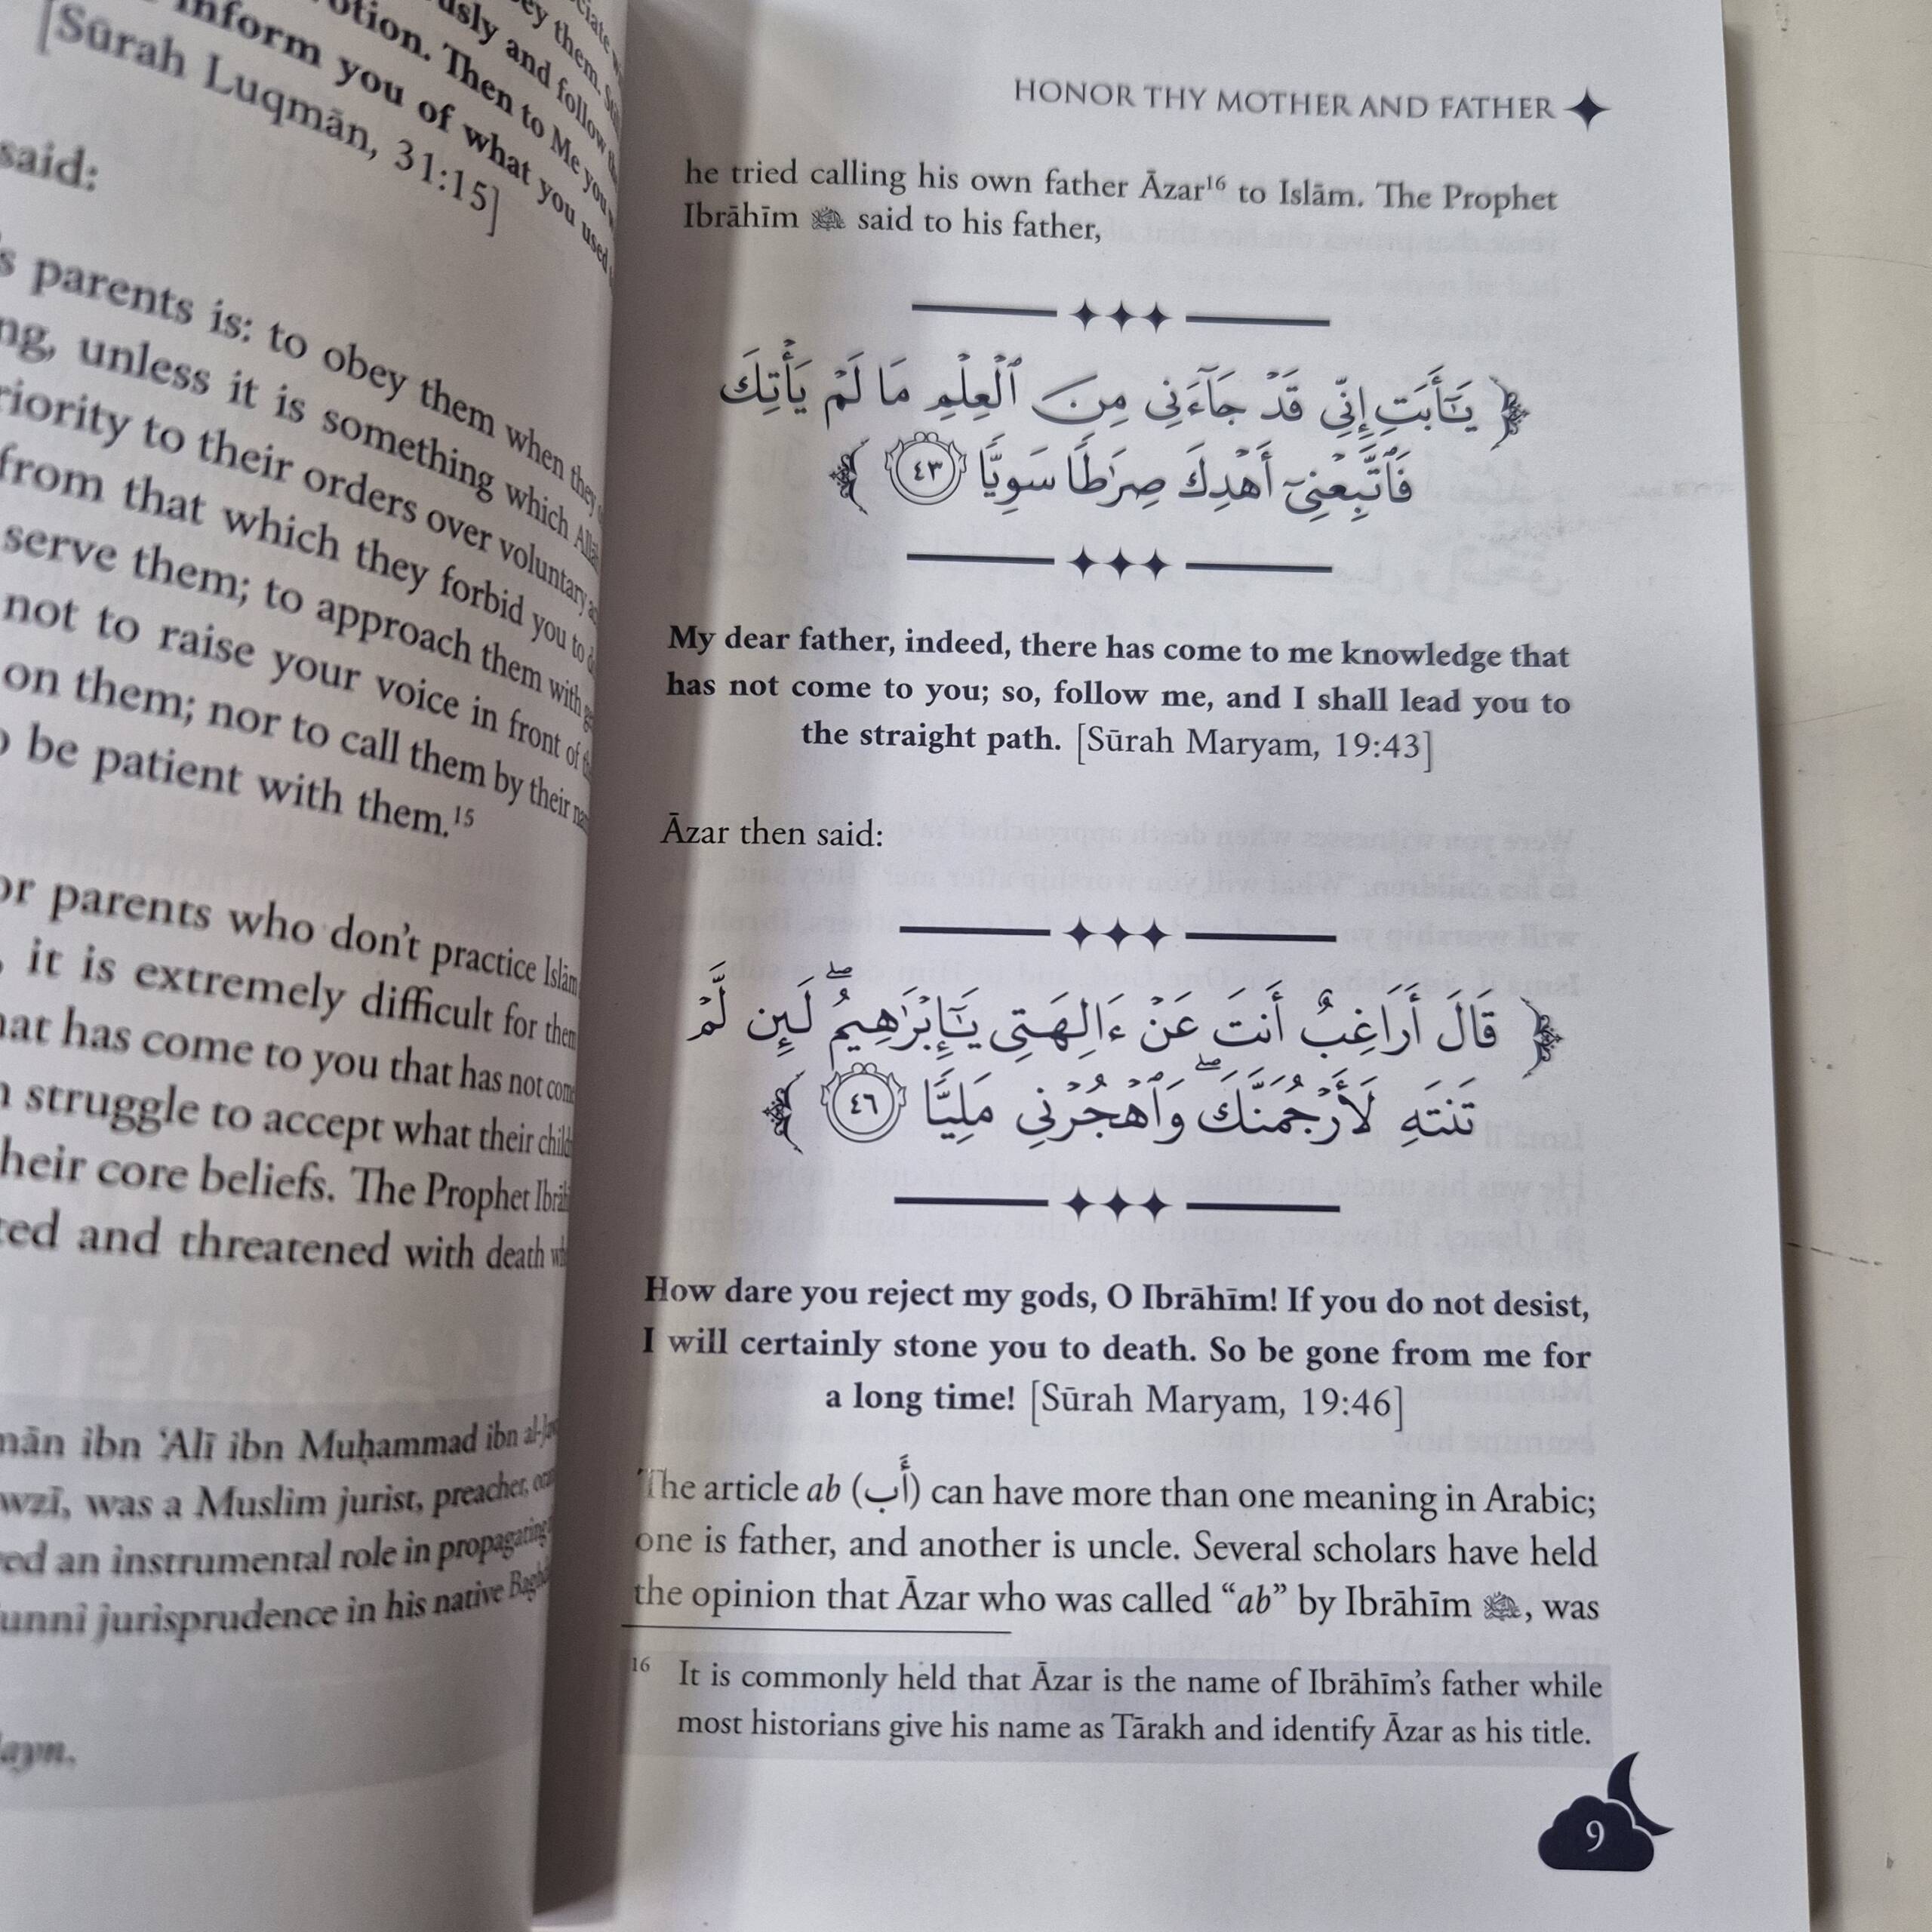 [Sūrah Luqmān, 31:15]
said:
parents is: to obey them when they
unless it is something which
to their orders over voluntary
from that which they forbid you to
serve them; to approach them with
not to raise your voice in front of
on them; nor to call them by their
be patient with them.¹⁵
parents who don't practice Islām
it is extremely difficult for them
has come to you that has not come
struggle to accept what their
their core beliefs. The Prophet
and threatened with death
ibn ‘Alī ibn Muḥammad ibn
was a Muslim jurist, preacher,
an instrumental role in propagating
jurisprudence in his native
HONOR THY MOTHER AND FATHER
he tried calling his own father Āzar¹⁶ to Islām. The Prophet
Ibrāhīm ﷺ said to his father,
﴿ يَـٰٓأَبَتِ إِنِّى قَدْ جَآءَنِى مِنَ ٱلْعِلْمِ مَا لَمْ يَأْتِكَ
فَٱتَّبِعْنِىٓ أَهْدِكَ صِرَٰطًا سَوِيًّا ٤٣ ﴾
My dear father, indeed, there has come to me knowledge that
has not come to you; so, follow me, and I shall lead you to
the straight path. [Sūrah Maryam, 19:43]
Āzar then said:
﴿ قَالَ أَرَاغِبٌ أَنتَ عَنْ ءَالِهَتِى يَـٰٓإِبْرَٰهِيمُ ۖ لَئِن لَّمْ
تَنتَهِ لَأَرْجُمَنَّكَ ۖ وَٱهْجُرْنِى مَلِيًّا ٤٦ ﴾
How dare you reject my gods, O Ibrāhīm! If you do not desist,
I will certainly stone you to death. So be gone from me for
a long time! [Sūrah Maryam, 19:46]
The article ab (أَب) can have more than one meaning in Arabic;
one is father, and another is uncle. Several scholars have held
the opinion that Āzar who was called “ab” by Ibrāhīm ﷺ, was
¹⁶ It is commonly held that Āzar is the name of Ibrāhīm’s father while
most historians give his name as Tārakh and identify Āzar as his title.
9